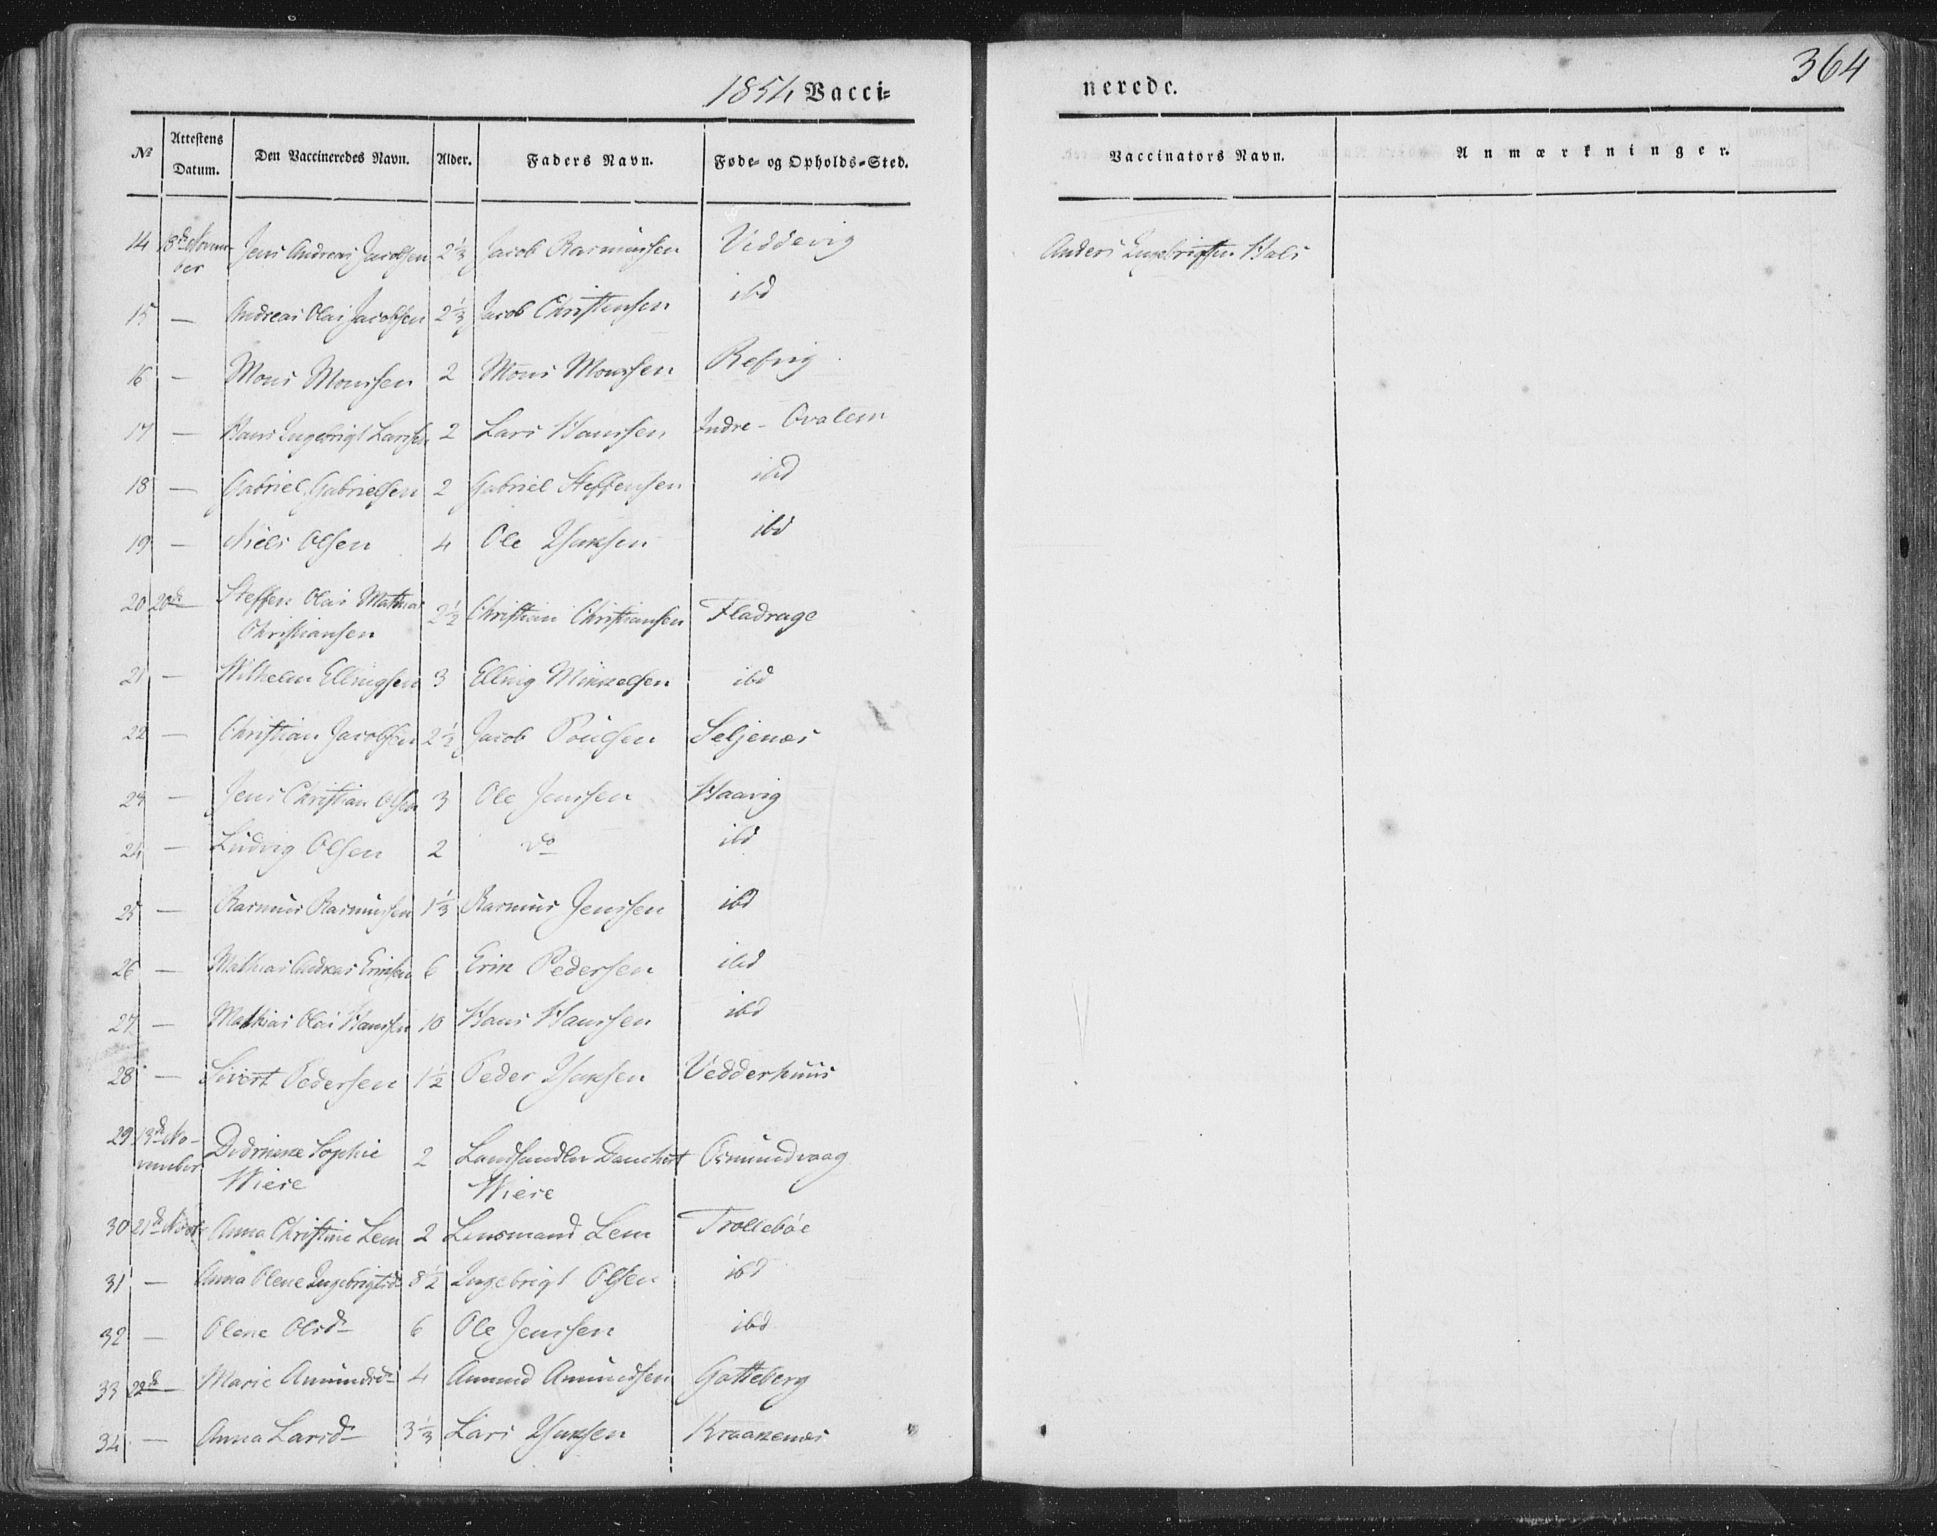 1854 Vacci=
nerede.
364
№ Attestens Datum. Den Vaccineredes Navn. Alder. Faders Navn. Føde- og Opholds-Sted. Vaccinators Navn. Anmærkninger.
14 18de Novem- Jens Andreas Jacobsen 2 1/3 Jacob Rasmussen Viddevig Anders Ingebrigtsen Hals
ber
15 — Andreas Olai Jacobsen 2 1/3 Jacob Christensen ibd
16 — Mons Monssen 2 Mons Monssen Refvig
17 — Hans Ingebrigt Larssen 2 Lars Hanssen Indre-Qvalem
18 — Gabriel Gabrielsen 2 Gabriel Steffensen ibd
19 — Niels Olsen 4 Ole Isaksen ibd
20 20de Steffen Olai Mathias
Christiansen 2 1/2 Christian Christiansen Fladrage
21 — Wilhelm Ellingsen 3 Elling Mikkelsen ibd
22 — Christian Jacobsen 2 1/2 Jacob Poulsen Seljenæs
23 — Jens Christian Olsen 3 Ole Jenssen Haavig
24 — Ludvig Olsen 2 do ibd
25 — Rasmus Rasmussen 1 1/3 Rasmus Jenssen ibd
26 — Mathias Andreas Eriksen 6 Erik Pedersen ibd
27 — Mathias Olai Hanssen 10 Hans Hanssen ibd
28 — Sivert Pedersen 1 1/2 Peder Isaksen Vedderhuus
29 13de No- Didrikke Sophie 2 Landhandler Danchert Osmundvaag
vember Wiese Wiese
30 21de Novb Anna Christine Lem 2 Lensmand Lem Trollebøe
31 — Anna Olene Ingebrigtsd 8 1/2 Ingebrigt Olsen ibd
32 — Olene Olsd 6 Ole Jenssen ibd
33 22de — Marie Amundsd 4 Amund Amundsen Gotteberg
34 — Anna Larsd 3 1/3 Lars Isaksen Kraakenæs